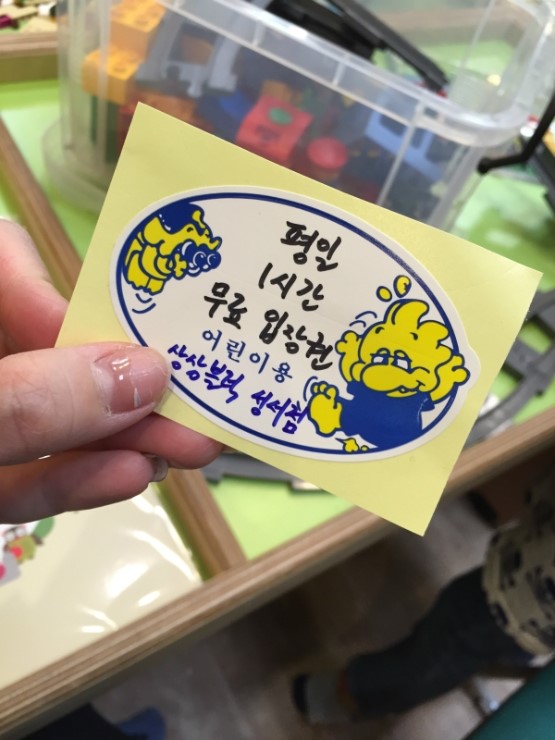 평일
1시간
무료 입장권
어린이용
상상블럭 성서점